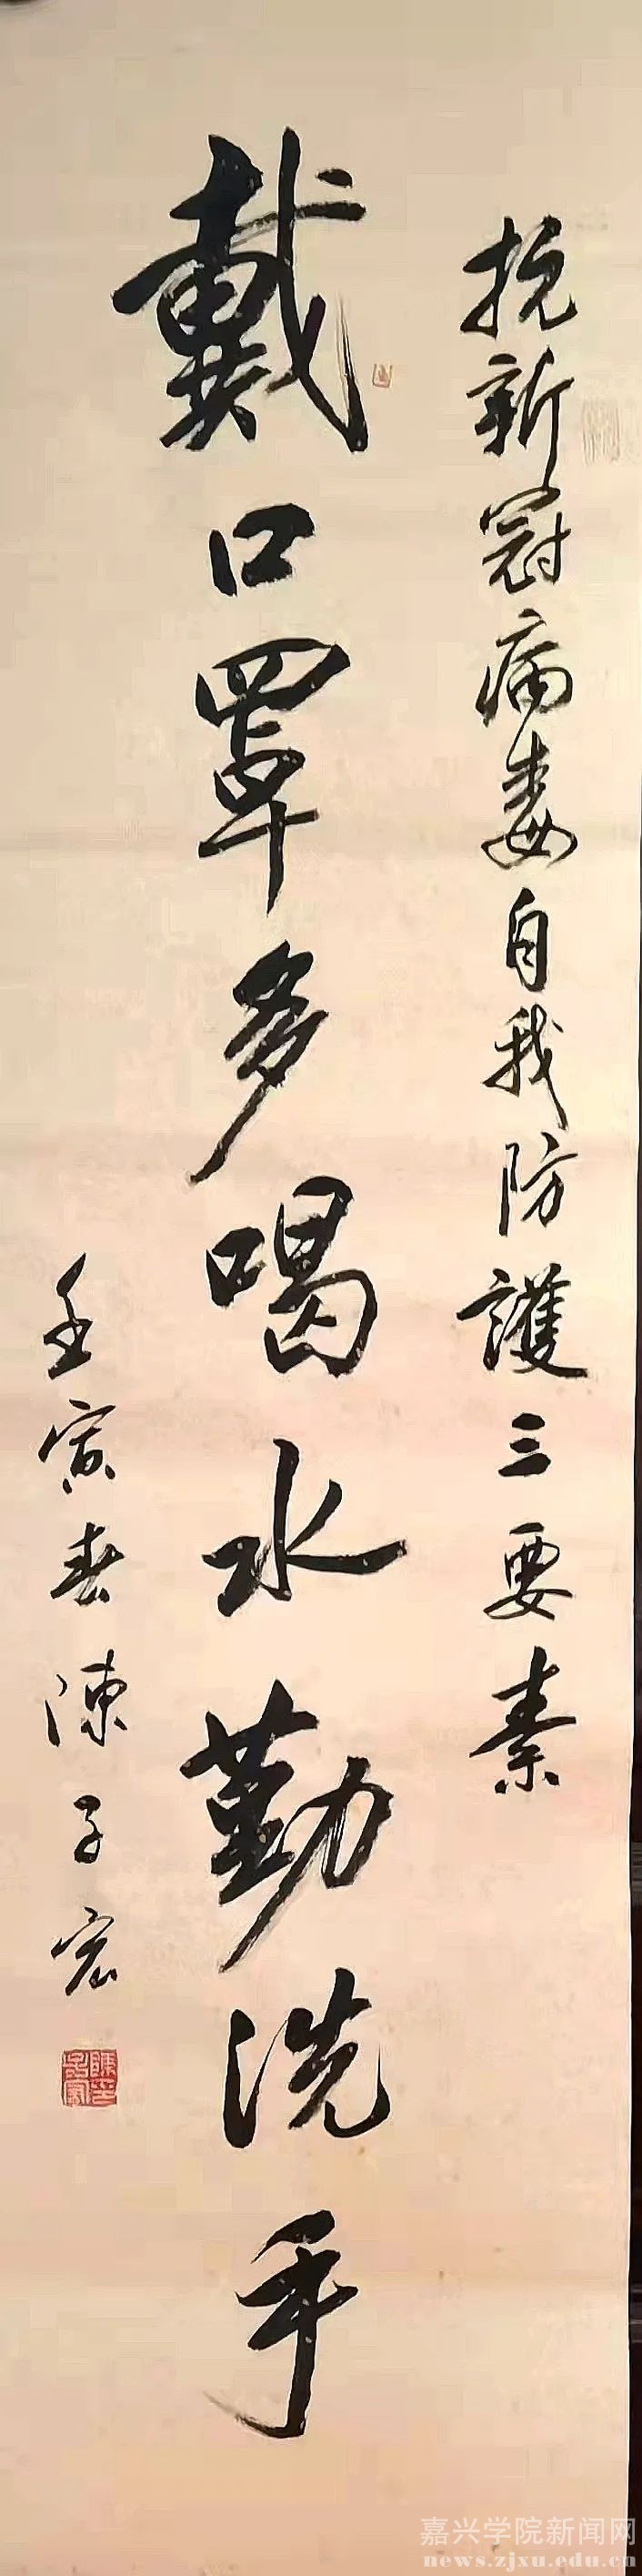 抗新冠病毒自我防護三要素
戴口罩多喝水勤洗手
壬寅春陳子宏
嘉兴学院新闻网
news.zjxu.edu.cn